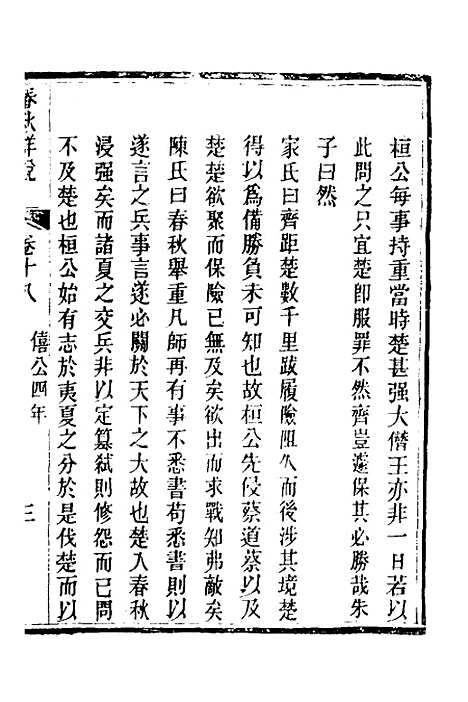 桓公每事持重當時楚甚强大僭王亦非一日若以
此問之只宜楚即服罪不然齊豈遽保其必勝哉朱
子曰然
家氏曰齊距楚數千里跋履險阻久而後涉其境楚
得以爲備勝負未可知也故桓公先侵蔡道蔡以及
楚楚欲聚而保險已無及矣欲出而求戰知弗敵矣
陳氏曰春秋舉重凡師再有事不悉書苟悉書則以
遂言之兵事言遂必關於天下之大故也楚入春秋
浸强矣而諸夏之交兵非以定篡弑則修怨而已問
不及楚也桓公始有志於夷夏之分於是伐楚而以
春秋詳說 卷十八 僖公四年 三